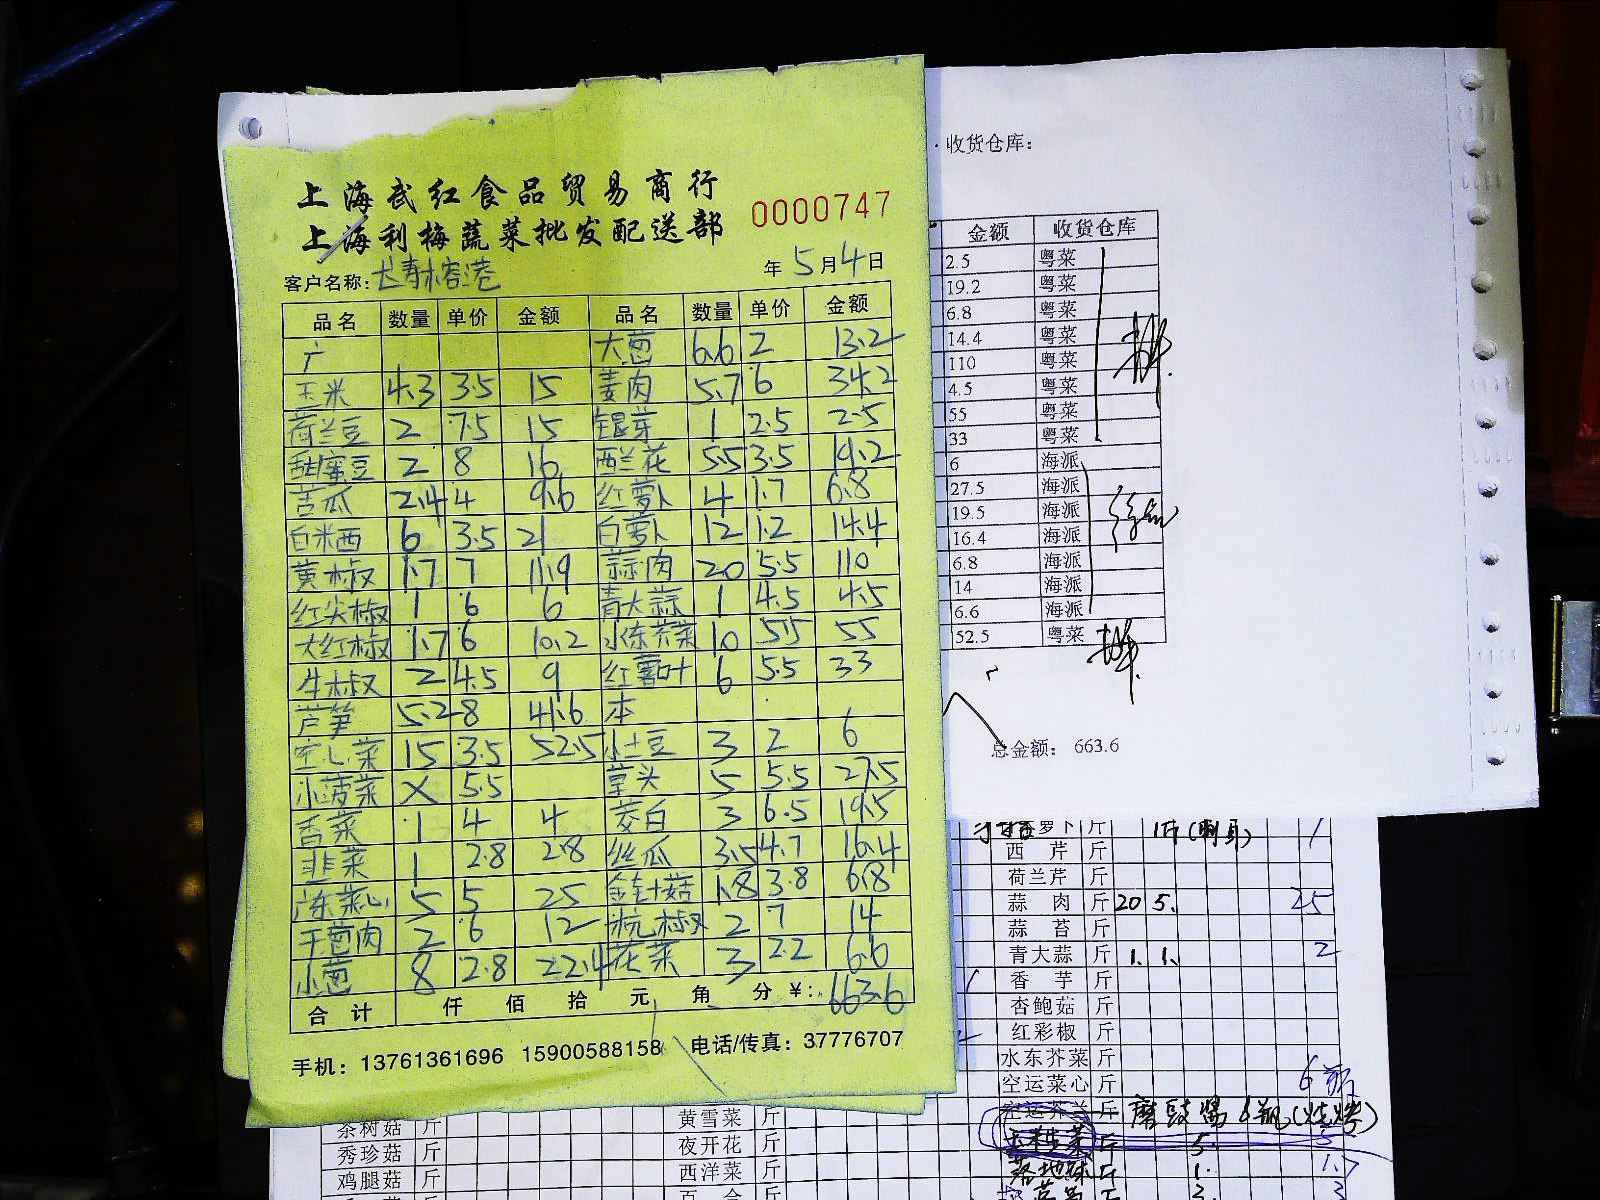 上海武红食品贸易商行
上海利梅蔬菜批发配送部
0000747
客户名称:
年5月4日
品名 数量 单价 金额 品名 数量 单价 金额
广 大葱 6.6 2 13.2
玉米 4.3 3.5 15 姜肉 5.7 6 34.2
荷兰豆 2 7.5 15 银芽 1 2.5 2.5
甜蜜豆 2 8 16 西兰花 5.5 3.5 19.2
苦瓜 2.4 4 9.6 红萝卜 4 1.7 6.8
白米西 6 3.5 21 白萝卜 12 1.2 14.4
黄椒 1.7 7 11.9 蒜肉 20 5.5 110
红尖椒 1 6 6 青大蒜 1 4.5 4.5
大红椒 1.7 6 10.2 水东芥菜 10 5.5 55
牛椒 2 4.5 9 红薯叶 6 5.5 33
芦笋 5.2 8 41.6 本
空心菜 15 3.5 52.5 小土豆 3 2 6
小菠菜 X 5.5 草头 5 5.5 27.5
香菜 1 4 4 茭白 3 6.5 19.5
韭菜 1 2.8 2.8 丝瓜 3.5 4.7 16.4
广东菜心 5 5 25 金针菇 1.8 3.8 6.8
干葱肉 2 6 12 杭椒 2 7 14
小葱 8 2.8 22.4 花菜 3 2.2 6.6
合计 仟 佰 拾 元 角 分 ¥: 663.6
手机: 13761361696 15900588158 电话/传真: 37776707
收货仓库:
金额 收货仓库
2.5 粤菜
19.2 粤菜
6.8 粤菜
14.4 粤菜
110 粤菜
4.5 粤菜
55 粤菜
33 粤菜
6 海派
27.5 海派
19.5 海派
16.4 海派
6.8 海派
14 海派
6.6 海派
52.5 粤菜
总金额: 663.6
萝卜 斤
西芹 斤
荷兰芹 斤
蒜肉 斤 20 5. 25
蒜苔 斤
青大蒜 斤 1. 1. 2
香芋 斤
杏鲍菇 斤
红彩椒 斤
水东芥菜 斤
空运菜心 斤
空运芥兰 斤
斤 5. 5
斤 1. 1.7
茶树菇 斤 黄雪菜 斤
秀珍菇 斤 夜开花 斤
鸡腿菇 斤 西洋菜 斤
百合 斤